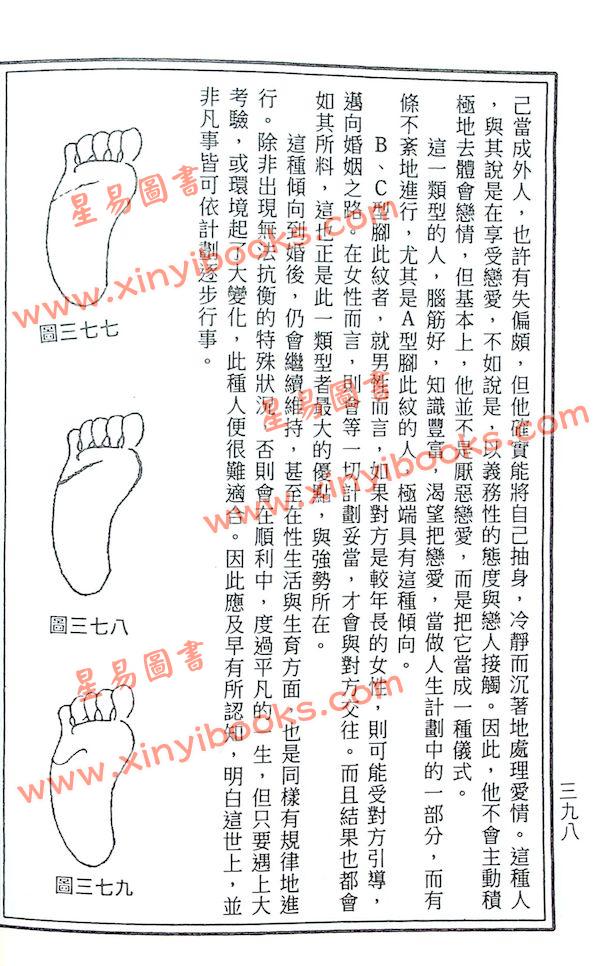 己當成外人，也許有失偏頗，但他確實能將自己抽身，冷靜而沉著地處理愛情。這種人
，與其說是在享受戀愛，不如說是，以義務性的態度與戀人接觸。因此，他不會主動積
極地去體會戀情，但基本上，他並不是厭惡戀愛，而是把它當成一種儀式。
這一類型的人，腦筋好，知識豐富，渴望把戀愛，當做人生計劃中的一部分，而有
條不紊地進行，尤其是A型腳此紋的人，極端具有這種傾向。
B、C型腳此紋者，就男性而言，如果對方是較年長的女性，則可能受對方引導，
邁向婚姻之路。在女性而言，則會等一切計劃妥當，才會與對方交往。而且結果也都會
如其所料，這也正是此一類型者最大的優點，與強勢所在。
這種傾向到婚後，仍會繼續維持，甚至在性生活與生育方面，也是同樣有規律地進
行。除非出現無法抗衡的特殊狀況，否則會在順利中，度過平凡的一生，但只要遇上大
考驗，或環境起了大變化，此種人便很難適合。因此應及早有所認知，明白這世上，並
非凡事皆可依計劃逐步行事。
圖三七七
圖三七八
圖三七九
三九八
星易圖書
www.xinyibooks.com
星易圖書
www.xinyibooks.com
星易圖書
www.xinyibooks.com